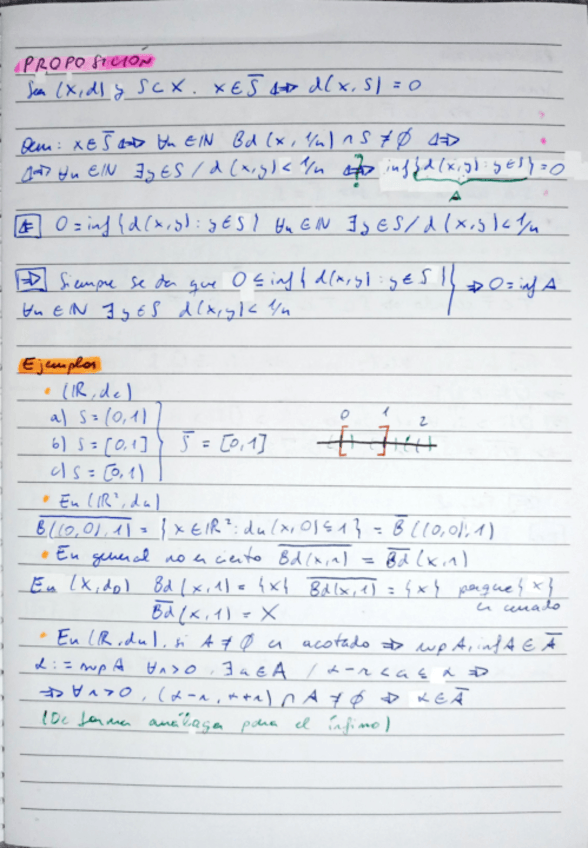 PROPOSICIÓN
Sea (X,d) y S⊂X. x∈S̅ ⇔ d(x,S)=0
Dem: x∈S̅ ⇔ ∀n∈ℕ Bd(x,1/n)∩S≠∅ ⇔
⇔ ∀n∈ℕ ∃y∈S / d(x,y)<1/n ⇔ inf{d(x,y): y∈S}=0
?
A
⇐ 0=inf{d(x,y): y∈S} ∀n∈ℕ ∃y∈S/d(x,y)<1/n
⇒ Siempre se da que 0≤inf{d(x,y): y∈S}
∀n∈ℕ ∃y∈S d(x,y)<1/n } ⇒ 0=inf A
Ejemplos
• (ℝ,de)
a) S=(0,1)
b) S=[0,1] } S̅=[0,1]
c) S=[0,1)
0 1 2
• En (ℝ²,du)
\overline{B((0,0),1)} = {x∈ℝ²: du(x,0)≤1} = B̅((0,0),1)
• En general no es cierto \overline{Bd(x,r)} = B̅d(x,r)
En (X,d₀) Bd(x,1)={x} \overline{Bd(x,1)}={x} porque {x}
es cerrado
B̅d(x,1)=X
• En (ℝ,du), si A≠∅ es acotado ⇒ sup A, inf A∈A̅
α:=sup A ∀r>0, ∃a∈A / α-r<a≤α ⇒
⇒ ∀r>0, (α-r, α+r)∩A≠∅ ⇒ α∈A̅
(De forma análoga para el ínfimo)